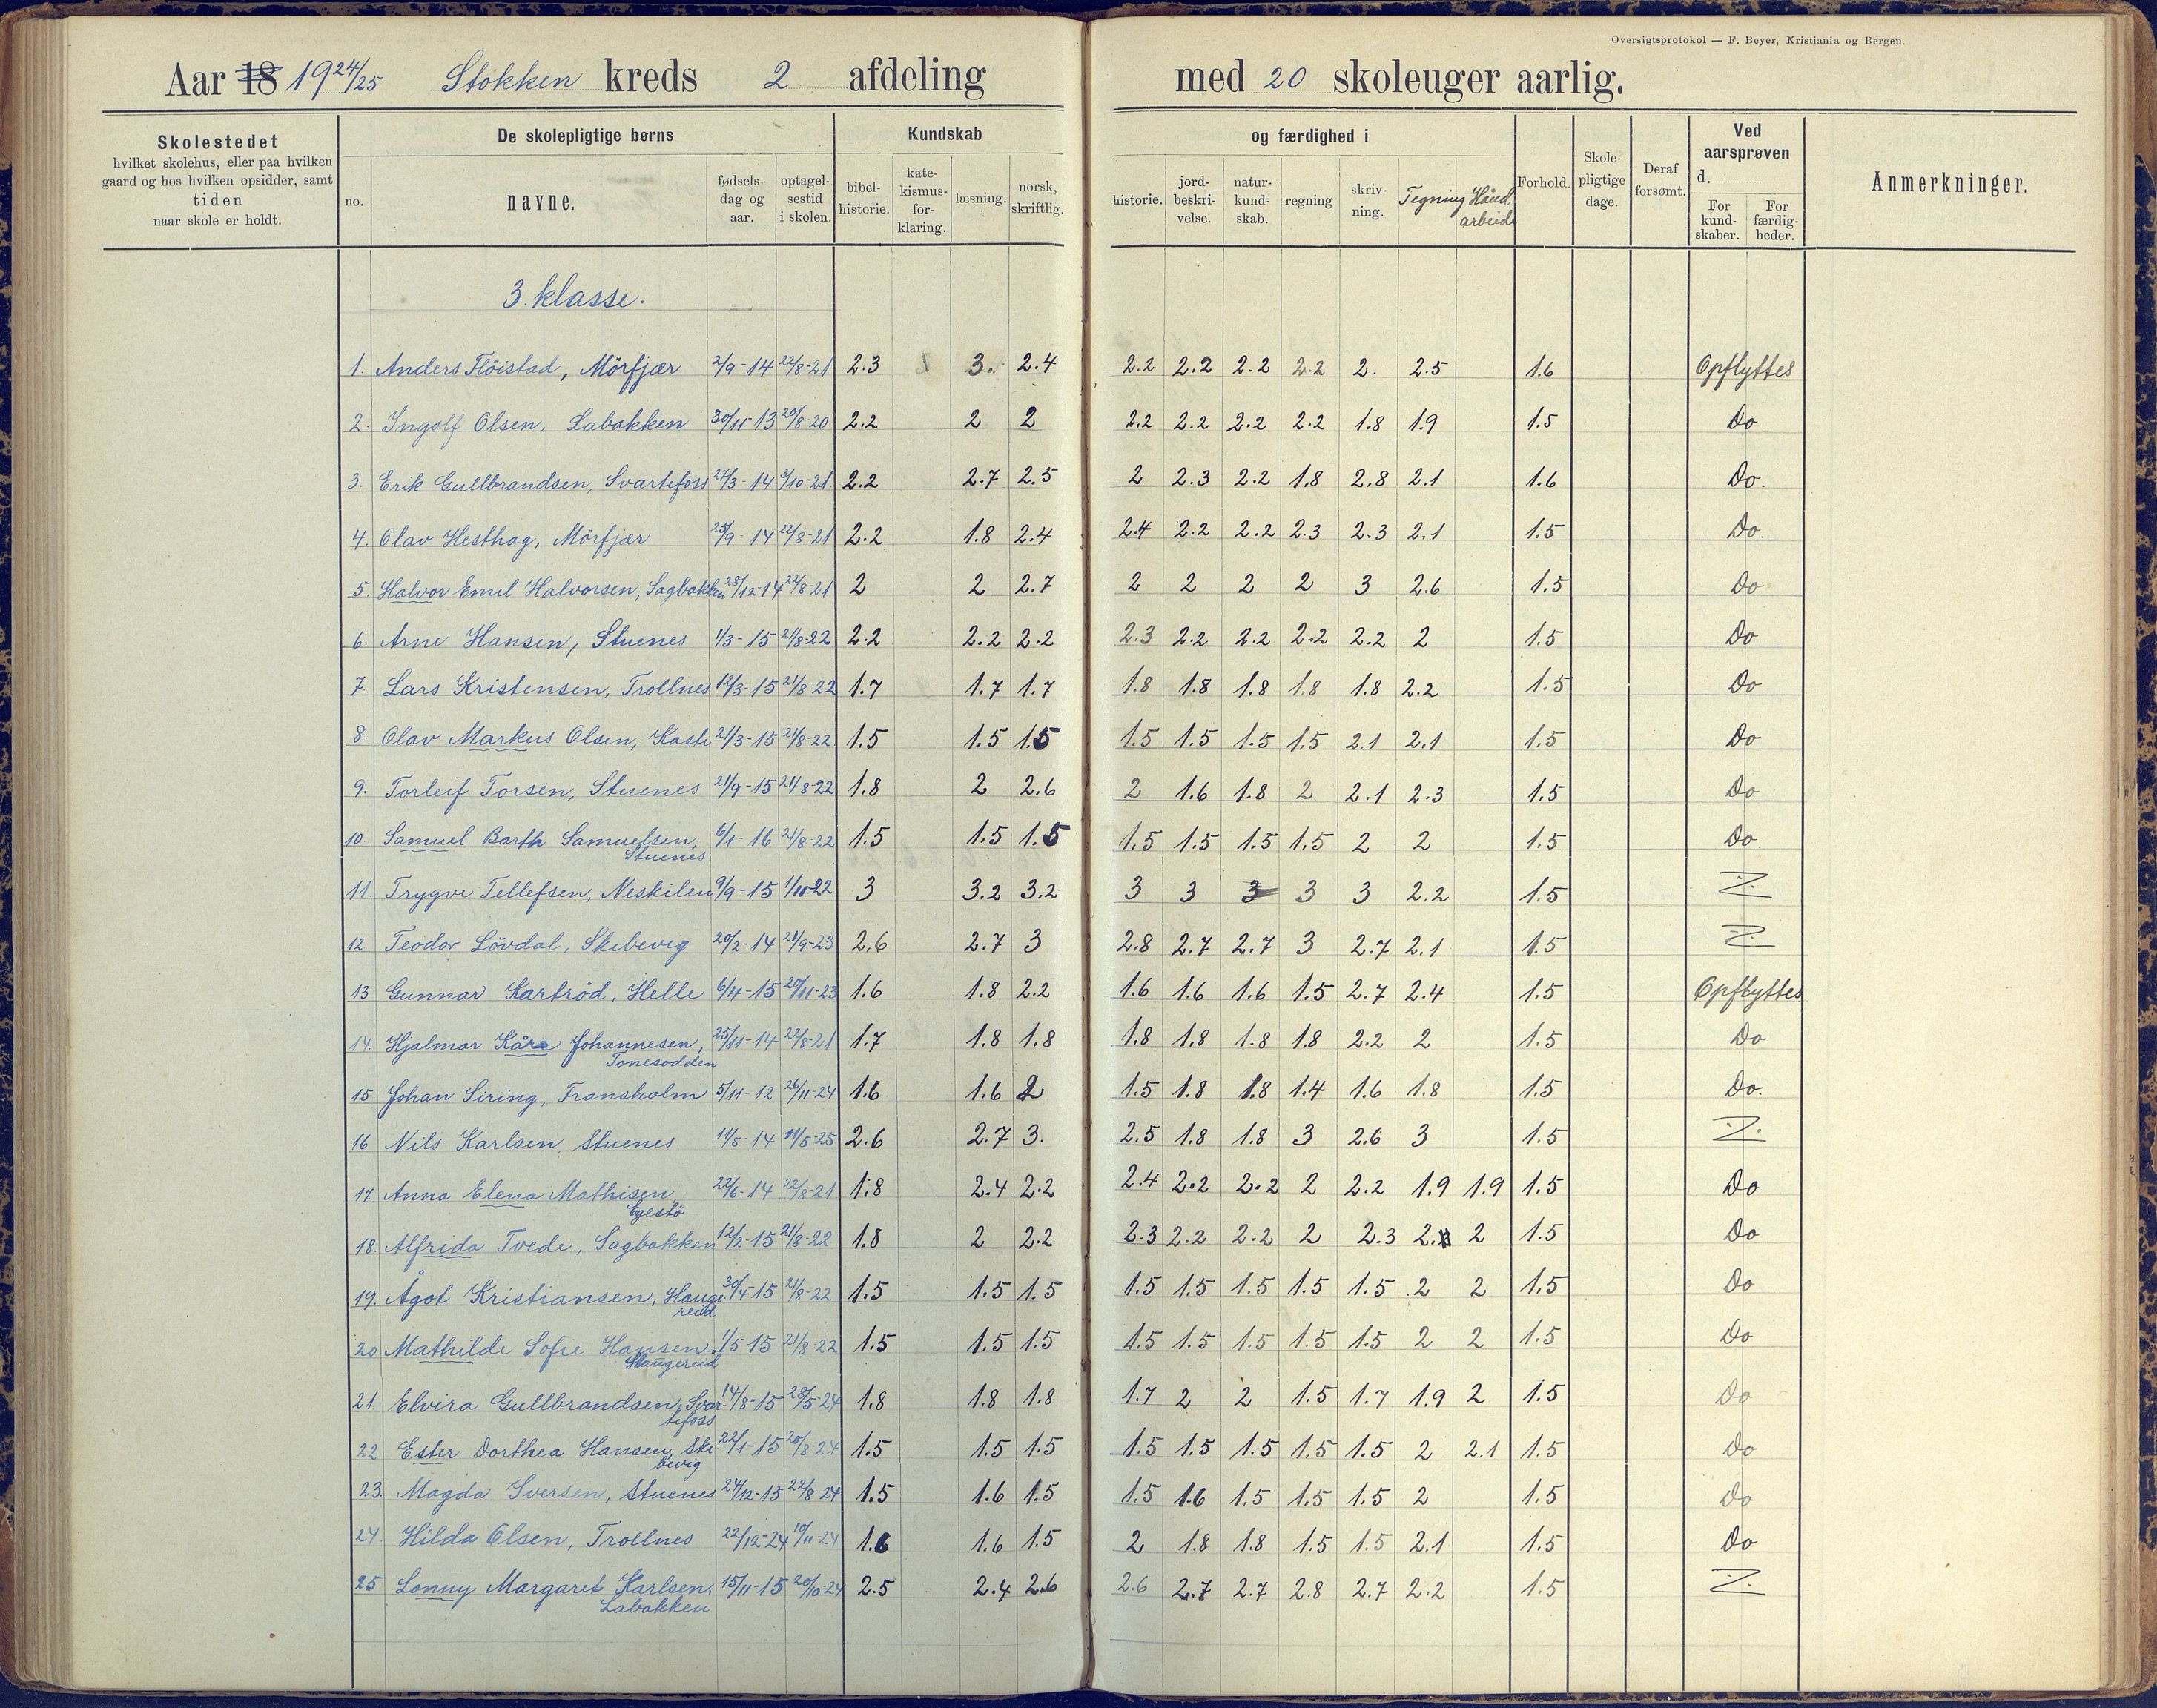 Oversigtsprotokol — F. Beyer, Kristiania og Bergen.
Aar 18 19 24/25 Stokken kreds 2 afdeling med 20 skoleuger aarlig.
Skolestedet
hvilket skolehus, eller paa hvilken
gaard og hos hvilken opsidder, samt
tiden
naar skole er holdt.
De skolepligtige børns
no.
navne.
fødsels-
dag og
aar.
optagel-
sestid
i skolen.
Kundskab
bibel-
historie.
kate-
kismus-
for-
klaring.
læsning.
norsk,
skriftlig.
og færdighed i
historie.
jord-
beskri-
velse.
natur-
kund-
skab.
regning
skriv-
ning.
Tegning
Hånd
arbeide
Forhold.
Skole-
pligtige
dage.
Deraf
forsømt.
Ved
aarsprøven
d.
For
kund-
skaber.
For
færdig-
heder.
Anmerkninger.
3. klasse.
1. Anders Flöistad, Mörfjær 2/9-14 22/8-21 2.3 3. 2.4 2.2 2.2 2.2 2.2 2. 2.5 1.6 Opflyttes
2. Ingolf Olsen, Labakken 30/11-13 20/8-20 2.2 2 2 2.2 2.2 2.2 2.2 1.8 1.9 1.5 Do
3. Erik Gullbrandsen, Svartefoss 27/3-14 3/10-21 2.2 2.7 2.5 2 2.3 2.2 1.8 2.8 2.1 1.6 Do.
4. Olav Hesthag, Mörfjær 25/9-14 22/8-21 2.2 1.8 2.4 2.4 2.2 2.2 2.3 2.3 2.1 1.5 Do.
5. Halvor Emil Halvorsen, Sagbakken 28/12-14 22/8-21 2 2 2.7 2 2 2 2 3 2.6 1.5 Do
6. Arne Hansen, Stuenes 1/3-15 21/8-22 2.2 2.2 2.2 2.3 2.2 2.2 2.2 2.2 2 1.5 Do
7 Lars Kristensen, Trollnes 12/3-15 21/8-22 1.7 1.7 1.7 1.8 1.8 1.8 1.8 1.8 2.2 1.5 Do
8. Olav Markus Olsen, Kaste 21/3-15 21/8-22 1.5 1.5 1.5 1.5 1.5 1.5 1.5 2.1 2.1 1.5 Do
9. Torleif Torsen, Stuenes 21/9-15 21/8-22 1.8 2 2.6 2 1.6 1.8 2 2.1 2.3 1.5 Do
10 Samuel Barth Samuelsen, 6/1-16 21/8-22 1.5 1.5 1.5 1.5 1.5 1.5 1.5 2 2 1.5 Do.
Stuenes
11 Trygve Tellefsen, Neskilen 9/9-15 1/10-22 3 3.2 3.2 3 3 3 3 3 2.2 1.5
12 Teodor Lövdal, Skibevig 20/2-14 21/9-23 2.6 2.7 3 2.8 2.7 2.7 3 2.7 2.1 1.5
13 Gunnar Kartröd, Helle 6/4-15 20/11-23 1.6 1.8 2.2 1.6 1.6 1.6 1.5 2.7 2.4 1.5 Opflyttes
14. Hjalmar Kåre Johannesen, 25/11-14 22/8-21 1.7 1.8 1.8 1.8 1.8 1.8 1.8 2.2 2 1.5 Do
Tonesodden
15. Johan Siring, Fransholm 5/11-12 26/11-24 1.6 1.6 2 1.5 1.8 1.8 1.4 1.6 1.8 1.5 Do.
16 Nils Karlsen, Stuenes 11/5-14 11/5-25 2.6 2.7 3. 2.5 1.8 1.8 3 2.6 3 1.5
17 Anna Elena Mathisen, 22/6-14 22/8-21 1.8 2.4 2.2 2.4 2.2 2.2 2 2.2 1.9 1.9 1.5 Do
Egestö
18. Alfrida Tvede, Sagbakken 12/2-15 21/8-22 1.8 2 2.2 2.3 2.2 2.2 2 2.3 2. 2 1.5 Do
19. Ågot Kristiansen, Hauge- 30/4-15 21/8-22 1.5 1.5 1.5 1.5 1.5 1.5 1.5 1.5 2 2 1.5 Do
reid
20 Mathilde Sofie Hansen, 1/5-15 21/8-22 1.5 1.5 1.5 1.5 1.5 1.5 1.5 1.5 2 2 1.5 Do
Haugereid
21. Elvira Gullbrandsen, Svar- 14/8-15 28/5-24 1.8 1.8 1.8 1.7 2 2 1.5 1.7 1.9 2 1.5 Do
tefoss
22 Ester Dorthea Hansen, Ski- 22/1-15 20/8-24 1.5 1.5 1.5 1.5 1.5 1.5 1.5 1.5 2 2.1 1.5 Do
bevig
23. Magda Iversen, Stuenes 24/12-15 22/8-24 1.5 1.6 1.5 1.5 1.6 1.5 1.5 1.5 2 1.5 Do
24. Hilda Olsen, Trollnes 22/12-24 10/11-24 1.6 1.6 1.5 2 1.8 1.8 1.5 1.5 2.1 1.5 Do
25 Lonny Margaret Karlsen, 15/11-15 20/10-24 2.5 2.4 2.6 2.6 2.7 2.7 2.8 2.7 2.2 1.5
Labakken